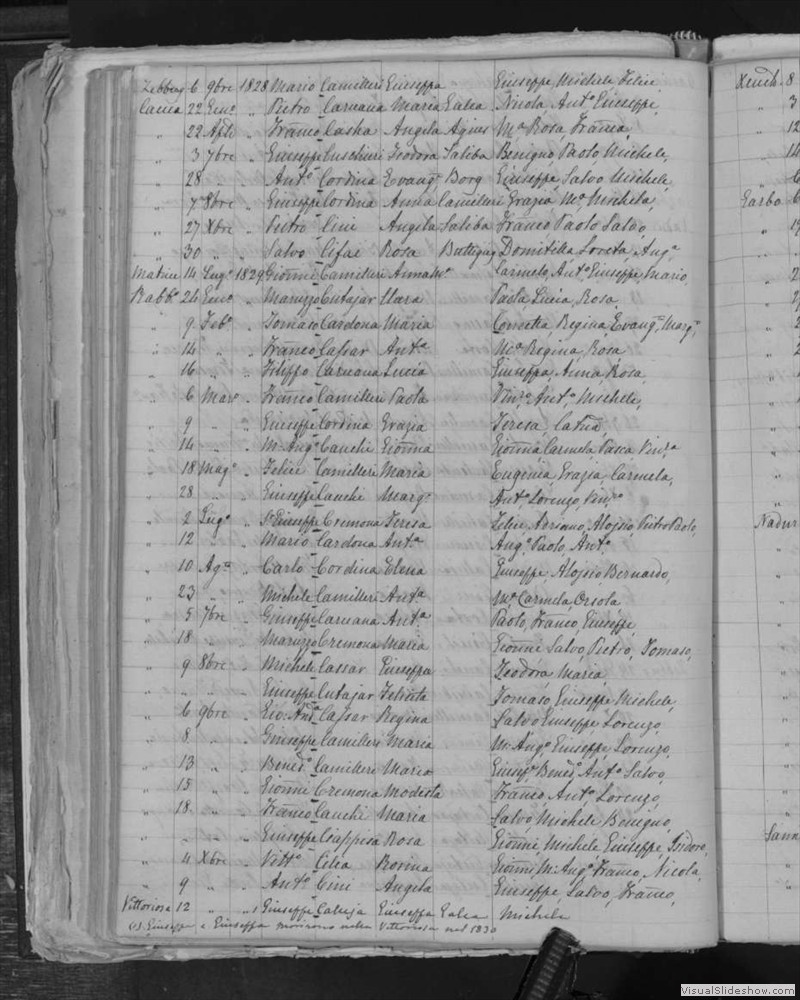 Zebbug 6 9bre 1828 Mario Camilleri Giuseppa Giuseppe Michele Felice
Caccia 22 Gen.o " Pietro Caruana Maria Galea Nicola Ant.o Giuseppe,
" 22 Aple " Franco Casha Angela Agnes M.a Rosa, Franca,
" 3 7bre " Giuseppe Cuschieri Teodora Saliba Benigno, Paolo, Michele,
" 28 " " Ant.o Cordina Evang.a Borg Giuseppe, Salvo Michele,
" 7 8bre " Giuseppe Cordina Anna Camilleri Grazia M.a, Michela,
" 27 Xbre " Pietro Cini Angela Saliba Franco Paolo Salvo,
" 30 " " Salvo Cifai Rosa Buttigieg Domitilla Loreta, Ang.a
Matrice 14 Lug.o 1829 Gionni Camilleri Anna M.a Carmelo, Ant.o Giuseppe, Mario,
Rabb.o 24 Gen.o " Maruzzo Cutajar Clara Paola Lucia, Rosa,
" 9 Feb.o " Tomaso Cardona Maria Concetta, Regina, Evang.a, Marg.a,
" 14 " " Franco Cassar Ant.a M.a Regina, Rosa
" 16 " " Filippo Caruana Lucia Giuseppa, Anna, Rosa,
" 6 Marzo " Franco Camilleri Paola Vin.a, Ant.a, Michele,
" 9 " " Giuseppe Cordina Grazia Teresa, Catna,
" 14 " " M. Ang.o Cauchi Gionna Gionna, Carmela, Pasca, Vin.a
" 18 Mag.o " Felice Camilleri Maria Eugenia, Grazia, Carmela,
" 28 " " Giuseppe Cauchi Marg.a Ant.o Lorenzo, Vin.o
" 2 Lug.o " Giuseppe Cremona Teresa Felice, Adriano, Aloisio, Pietro Paolo,
" 12 " " Mario Cardona Ant.a Ang.o Paolo, Ant.o
" 10 Ag.o " Carlo Cordina Elena Giuseppe, Aloisio Bernardo,
" 23 " " Michele Camilleri Ant.a M.a Carmela, Orsola
" 5 7bre " Giuseppe Caruana Ant.a Paolo, Franco, Giuseppe,
" 18 " " Maruzzo Cremona Maria Gionni Salvo, Pietro, Tomaso,
" 9 8bre " Michele Cassar Giuseppa Teodora Maria,
" " " " Giuseppe Cutajar Felicita Tomaso, Giuseppe, Michele,
" 6 9bre " Gio: And.a Cassar Regina Salvo, Giuseppe, Lorenzo,
" 8 " " Giuseppe Camilleri Maria M. Ang.o Giuseppe, Lorenzo,
" 13 " " Bened.o Camilleri Maria Giusep.e Bened.o Ant.o Salvo,
" 15 " " Gionni Cremona Modesta Franco, Ant.o, Lorenzo,
" 18 " " Franco Cauchi Maria Salvo, Michele Benigno,
" " " " Giuseppe Ciappisa Rosa Gionni Michele Giuseppe Isidoro,
" 4 Xbre " Vitt.o Cilia Rosina Gionni M. Ang.o Franco, Nicola,
" 9 " " Ant.o Cini Angela Giuseppe, Salvo, Franco,
Vittoriosa 12 " " Giuseppe Calleja Giuseppa Galea Michele
(1) Giuseppe e Giuseppa morirono nella Vittoriosa nel 1830
Xeuch. 8
" 3
" 12
" 14
" 6
Garbo 6
Nadur
Sann
VisualSlideshow.com